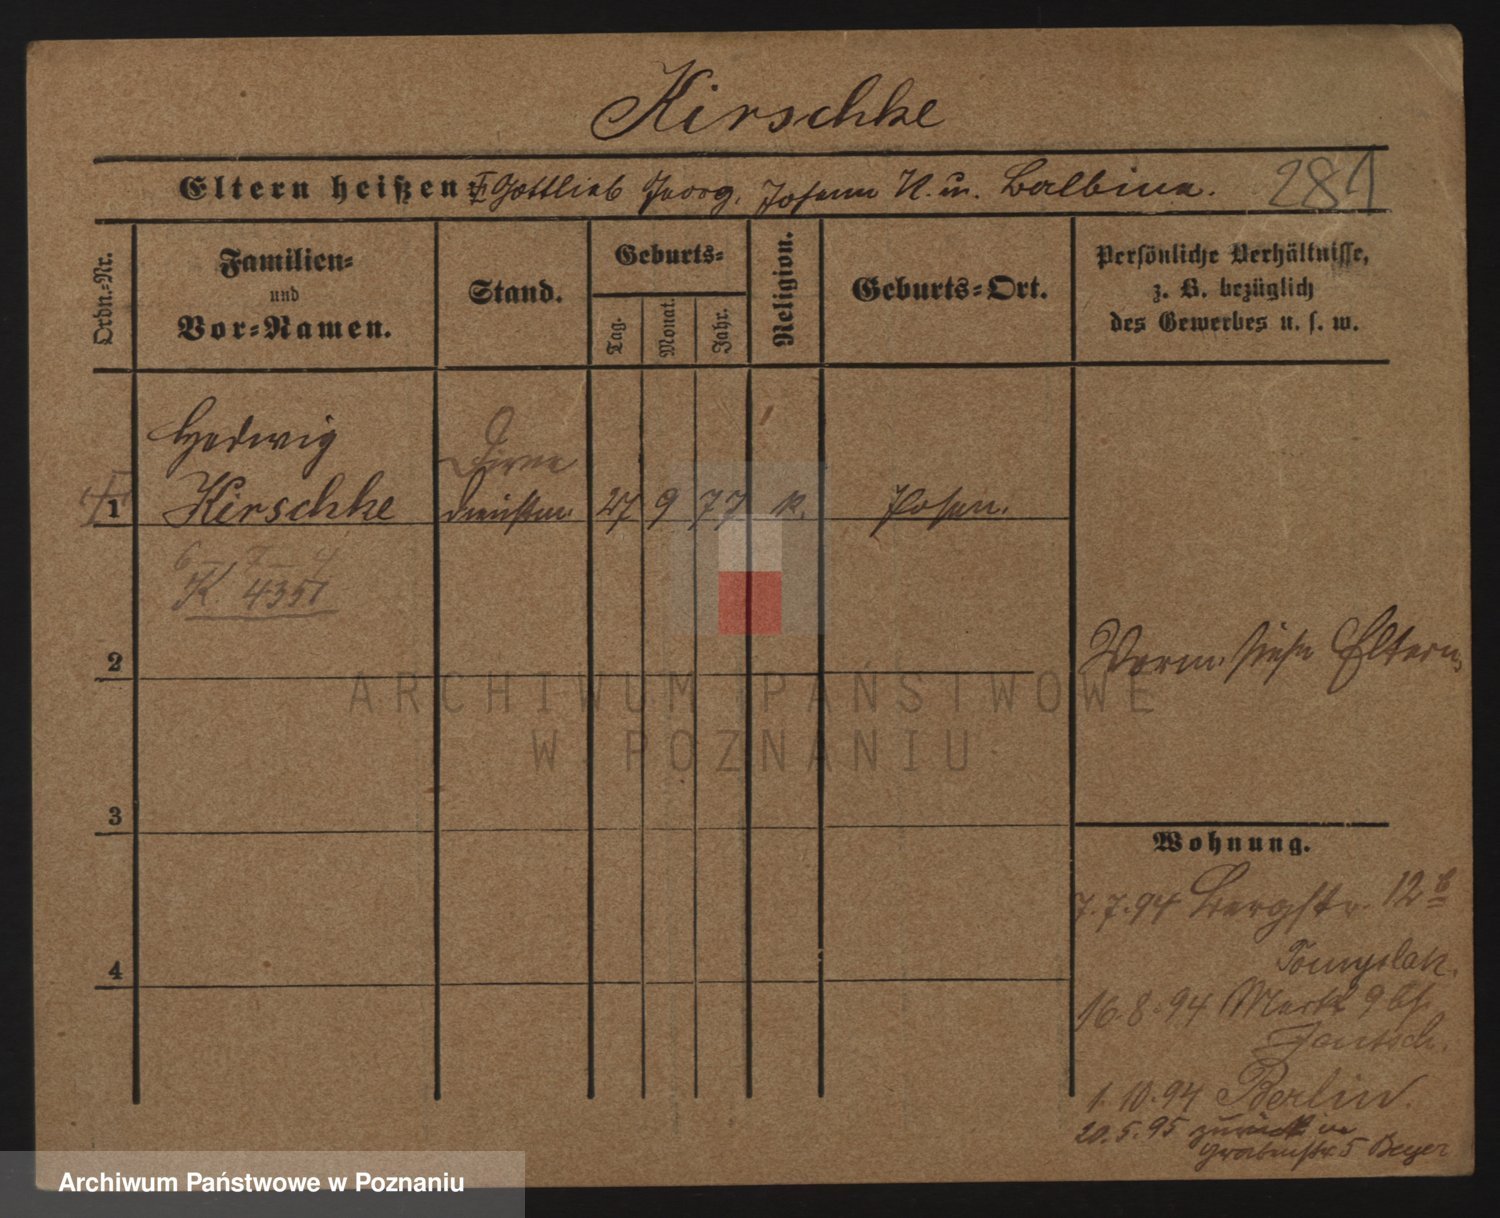 Kirschke
Eltern heißen: Gottlieb Georg, Johann K. u. Balbina. 281
Ordn.-Nr.
Familien-
und
Vor-Namen.
Stand.
Geburts-
Tag.
Monat.
Jahr.
Religion.
Geburts-Ort.
Persönliche Verhältnisse,
z. B. bezüglich
des Gewerbes u. s. w.
Hedwig
Dirne
1 Kirschke Dienstm. 27 9 77 K. Posen.
6 – 7 – 4
K. 4351
2
Vorm. siehe Eltern
3
4
Wohnung.
7.7.94 Bergstr. 12 b
16.8.94 Markt 9 bf.
Jantsch.
1.10.94 Berlin.
20.5.95 zurück in
Grabenstr 5 Beyer
ARCHIWUM PAŃSTWOWE
W POZNANIU
Archiwum Państwowe w Poznaniu